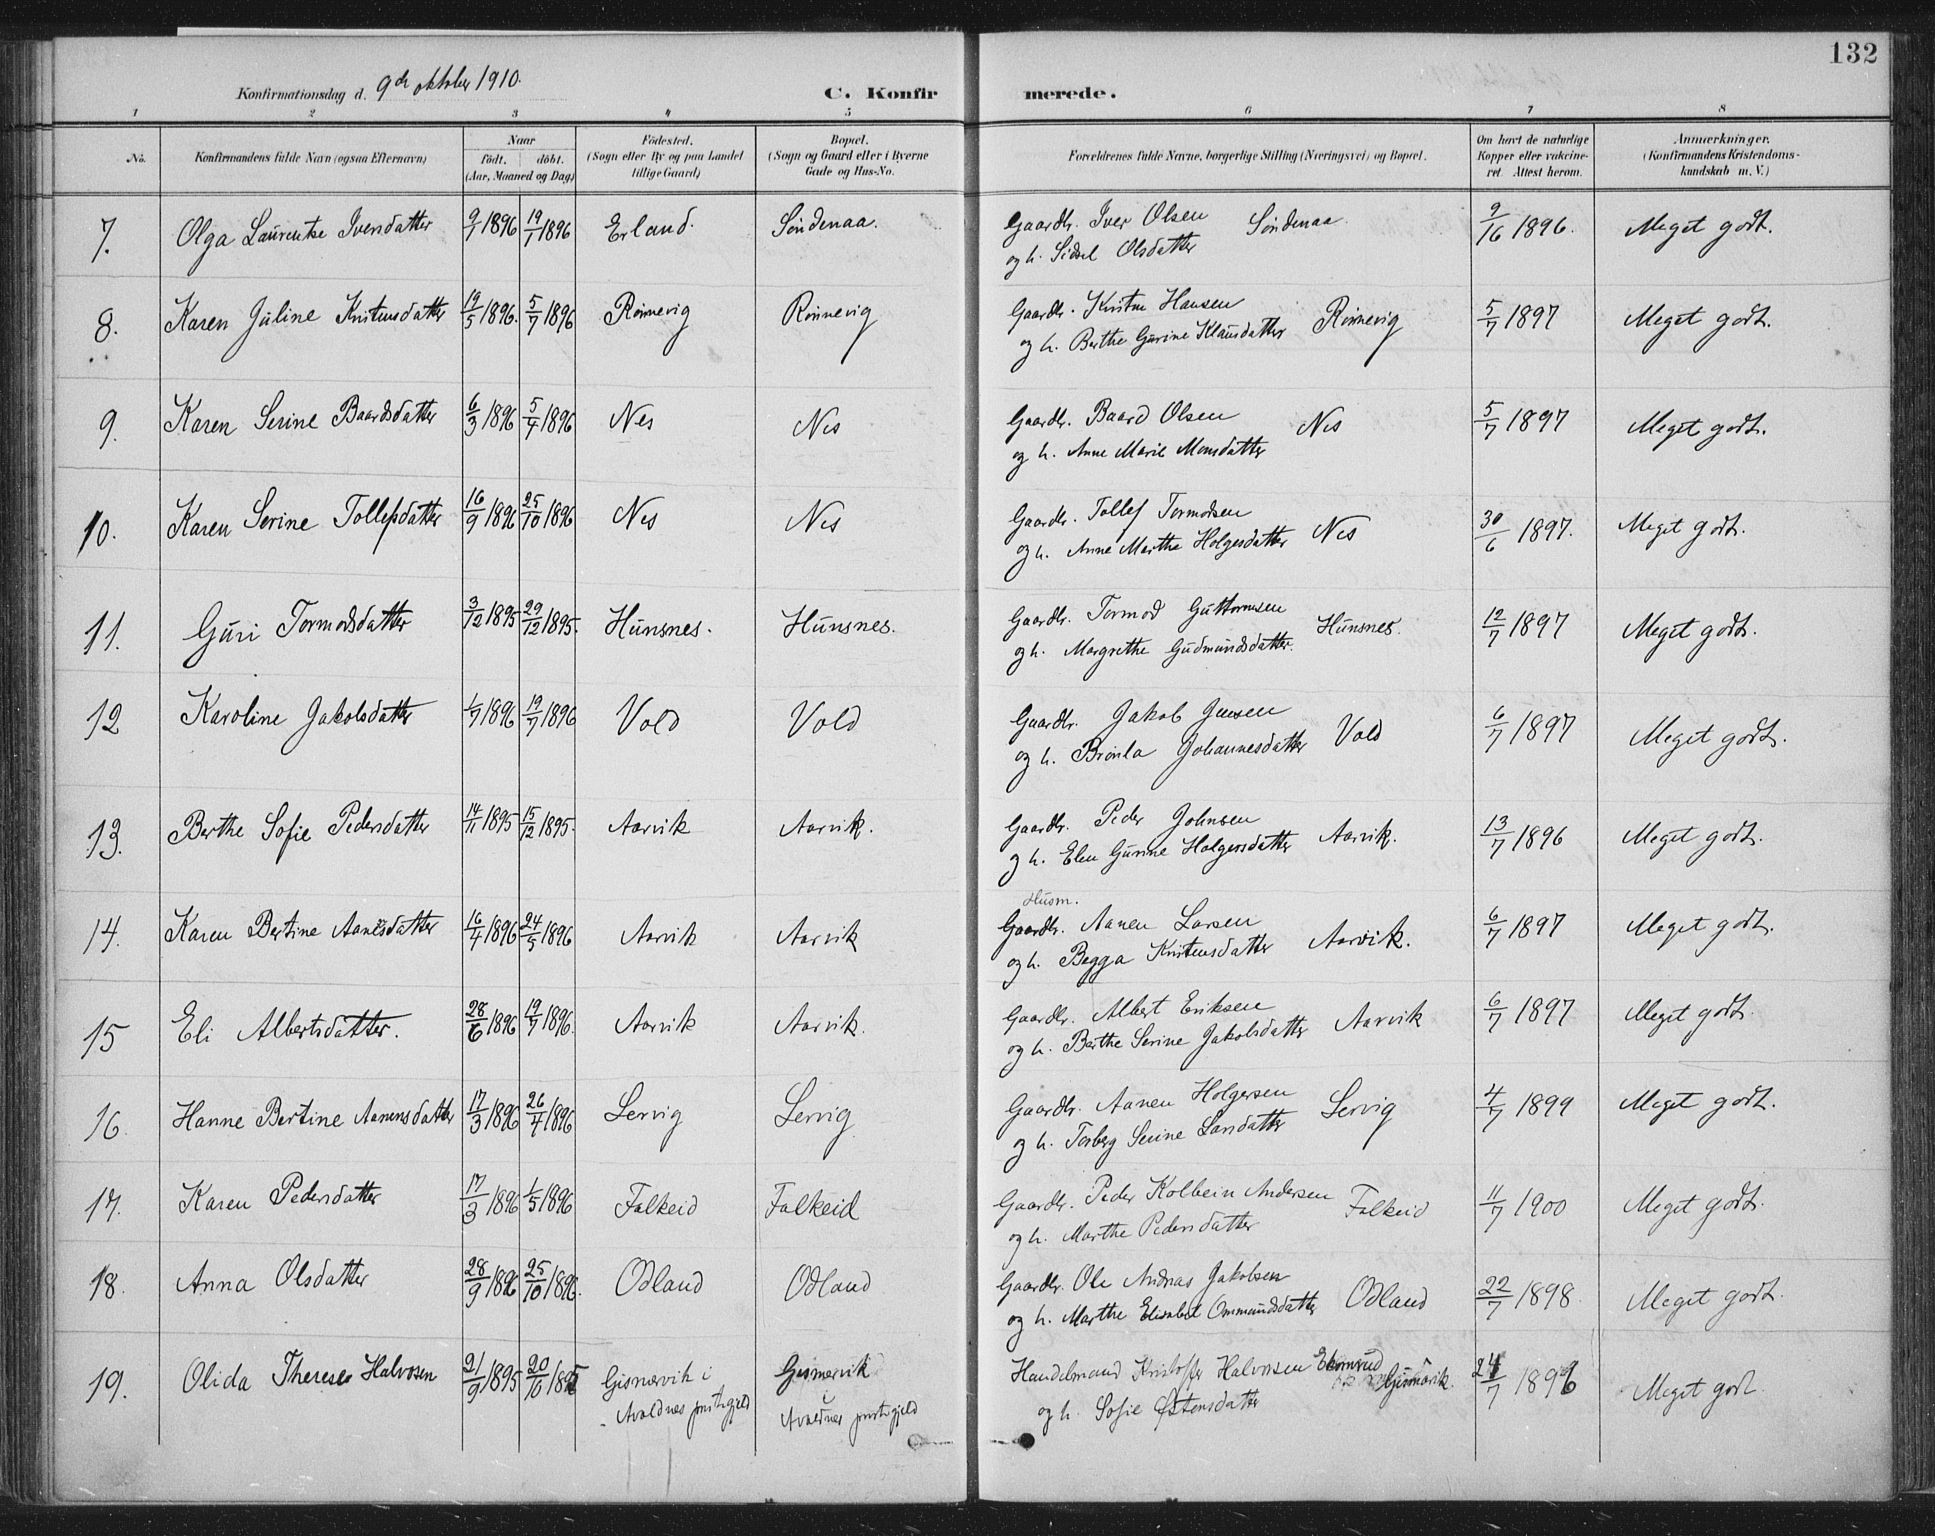 132
Konfirmationsdag d. 9de oktober 1910.
C. Konfirmerede.
1 2 3 4 5 6 7 8
No. Konfirmandens fulde Navn (ogsaa Efternavn) Naar födt. döbt. (Aar, Maaned og Dag) Födested. (Sogn eller By og paa Landet tillige Gaard) Bopæl. (Sogn og Gaard eller i Byerne Gade og Hus-No. Forældrenes fulde Navne, borgerlige Stilling (Næringsvei) og Bopæl. Om havt de naturlige Kopper eller vakcineret. Attest herom. Anmærkninger. (Konfirmandens Kristendomskundskab m. V.)
7. Olga Laurentse Iversdatter 9/1 1896 19/1 1896 Erland. Søndenaa. Gaardbr. Iver Olsen Søndenaa 9/16 1896. Meget godt.
og h. Sidsel Olsdatter
8. Karen Juline Kristensdatter 19/5 1896. 5/7 1896 Rønnevig Rønnevig Gaardbr. Kristen Hansen Rønnevig 5/7 1897 Meget godt.
og h. Berthe Gurine Klausdatter
9. Karen Serine Baardsdatter 6/3 1896 5/4 1896 Nes Nes Gaardbr. Baard Olsen Nes 5/7 1897 Meget godt.
og h. Anne Marie Monsdatter
10. Karen Serine Tollefsdatter 16/9 1896 25/10 1896 Nes Nes Gaardbr. Tollef Tormodsen Nes 30/6 1897. Meget godt.
og h. Anne Marthe Holgersdatter
11. Guri Tormodsdatter 3/12 1895 29/12 1895. Hunsnes. Hunsnes. Gaardbr. Tormod Guttormsen Hunsnes. 12/7 1897 Meget godt.
og h. Margrethe Gudmundsdatter.
12 Karoline Jakobsdatter 1/7 1896 19/7 1896 Vold Vold Gaardbr. Jakob Jensen Vold 6/7 1897 Meget godt.
og h. Brønla Johannesdatter
13. Berthe Sofie Pedersdatter 14/11 1895 15/12 1895. Aarvik Aarvik. Gaardbr. Peder Johnsen Aarvik. 13/7 1896 Meget godt.
og h. Elen Gurine Holgersdatter
Husm.
14. Karen Bertine Aanensdatter 16/4 1896 24/5 1896 Aarvik Aarvik Gaardbr. Aanen Larsen Aarvik. 6/7 1897 Meget godt.
og h. Begga Kristensdatter
15 Eli Albertsdatter. 28/6 1896 19/7 1896. Aarvik Aarvik. Gaardbr. Albert Eriksen Aarvik 6/7 1897 Meget godt.
og h. Berthe Serine Jakobsdatter
16. Hanne Bertine Aanensdatter 17/3 1896 26/4 1896 Lervig Lervig Gaardbr. Aanen Holgersen Lervig 4/7 1899 Meget godt.
og h. Torberg Serine Larsdatter
17. Karen Pedersdatter 17/3 1896 1/5 1896 Falkeid Falkeid Gaardbr. Peder Kolbein Andersen Falkeid 11/7 1900 Meget godt.
og h. Marthe Pedersdatter
18. Anna Olsdatter 28/9 1896 25/10 1896. Odland Odland Gaardbr. Ole Andreas Jakobsen Odland 22/7 1898 Meget godt.
og h. Marthe Elisabet Ommundsdatter
19. Olida Therese Halvorsen 21/9 1895 20/10 1895 Gismervik i Gismervik Handelsmand Kristoffer Halvorsen Gismervik. 24/7 1896 Meget godt.
Avaldnes prestegjeld i Avaldnes prestegjeld og h. Sofie Østensdatter